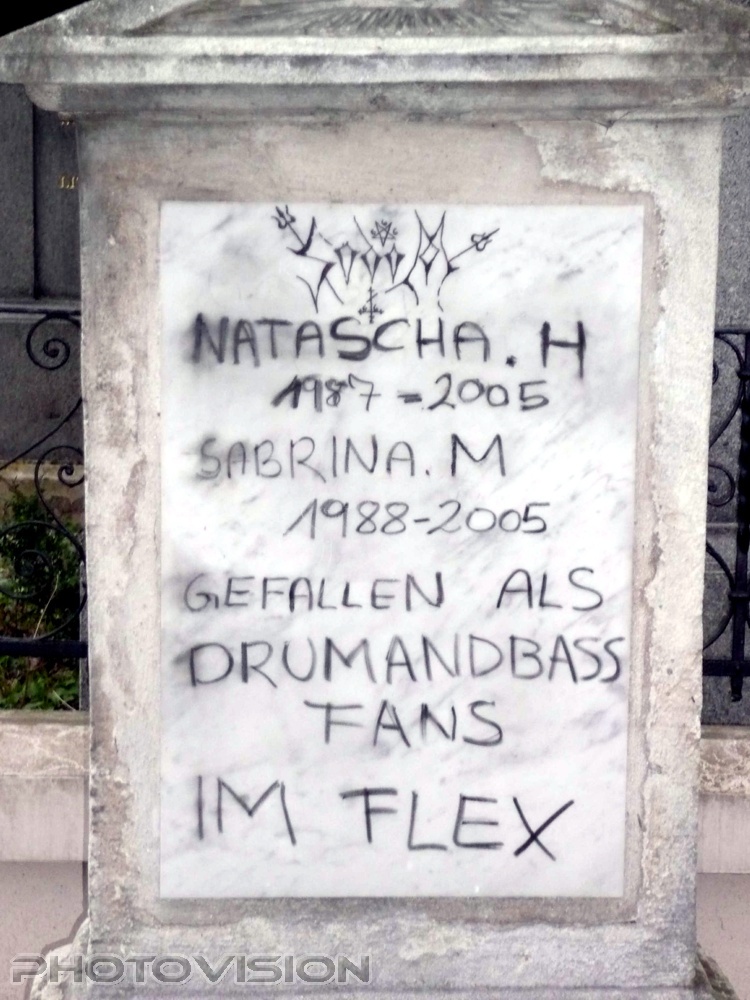 NATASCHA. H
1987-2005
SABRINA. M
1988-2005
GEFALLEN ALS
DRUMANDBASS
FANS
IM FLEX
PHOTOVISION